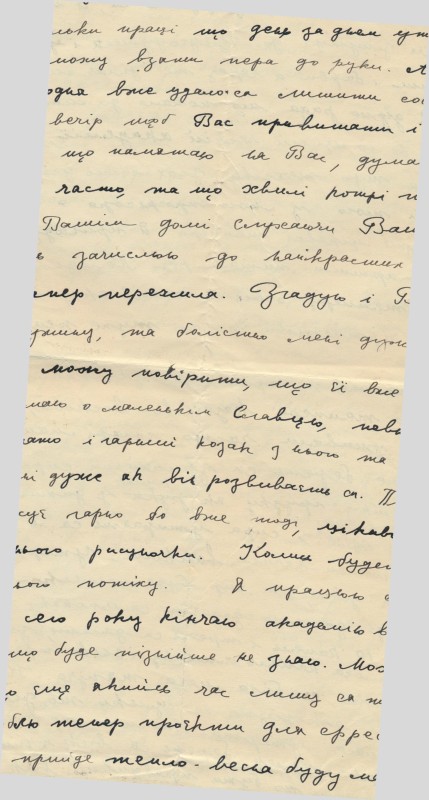 льки праці що день за днем
можу взяти пера до руки.
одна вже удалося лишити
вечір щоб Вас привитати і
що памятаю за Вас, дума
часто, та що хвилі котрі
Вашім домі слухаючи Ваш
ь зачислюю до найкрасших
епер пережила. Згадую і
ружину, та болістью мені
можу повірити, що її вже
маю о маленькім Славцю,
і гарний козак з нього та
ні дуже як він розвиваєть ся. П
сує гарно бо вже тоді, цікав
нього рисуночки. Коли будете
ього потіху. Я працюю
сего року кінчаю академію в
що буде пізнійше не знаю. Мож
о еще якийсь час лишу ся
блю тепер проєкти для фрес
прийде тепло - весна буду